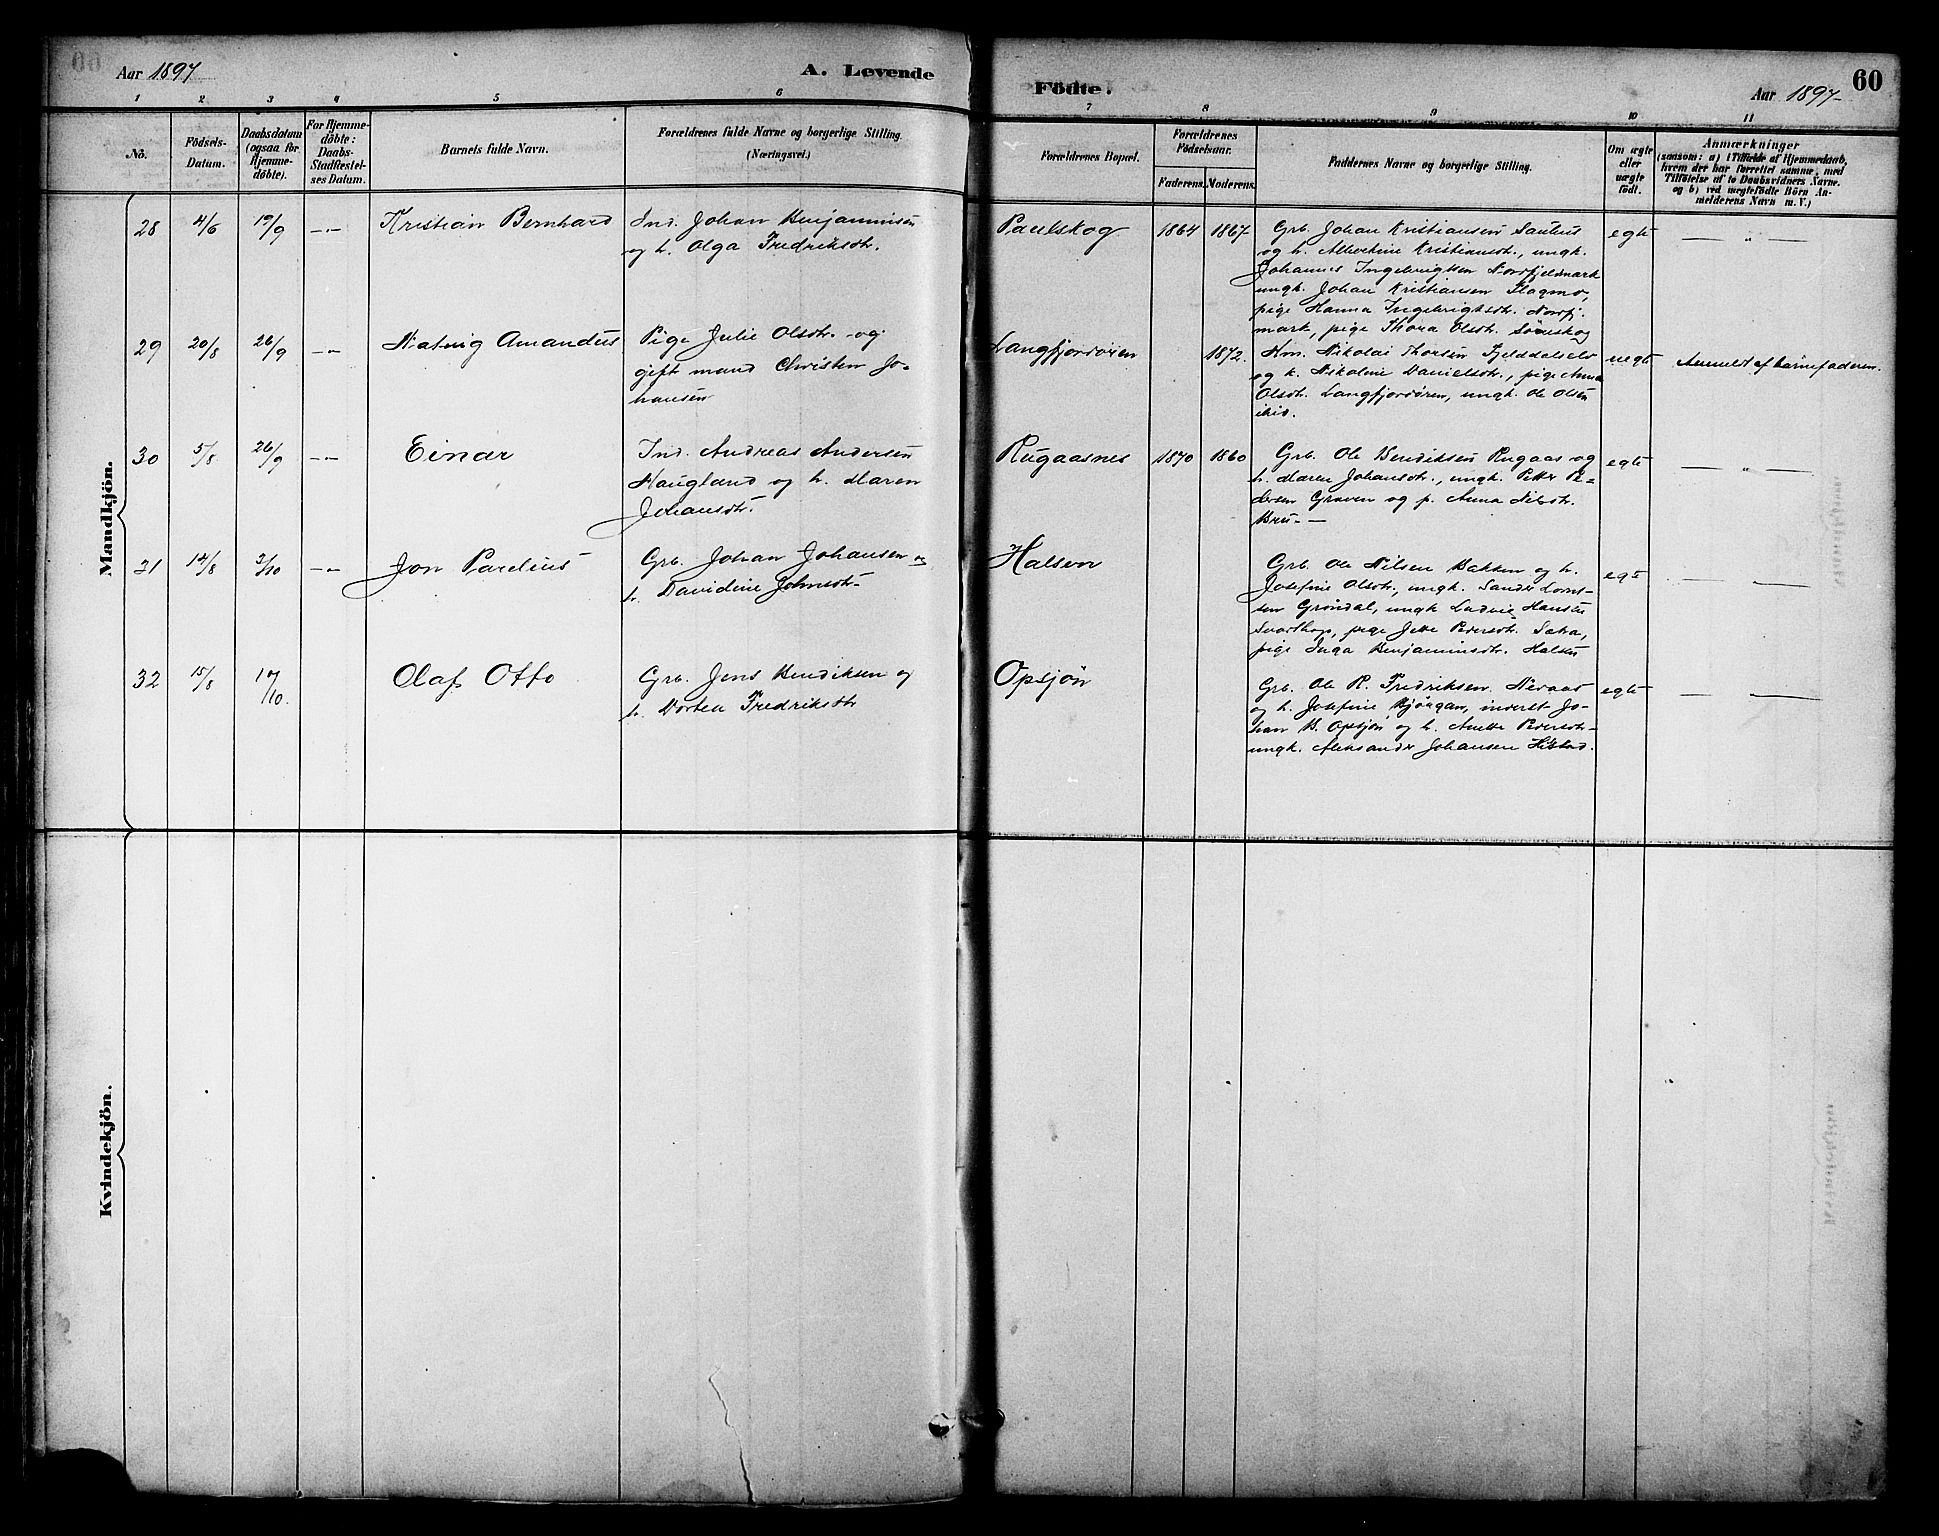 Aar 1897
A. Levende
Födte.
Aar 1897
60
1 2 3 4 5 6 7 8 9 10 11
No.
Födsels-
Datum.
Daabsdatum
(ogsaa for
Hjemme-
döbte).
For Hjemme-
döbte:
Daabs-
Stadfæstel-
ses Datum.
Barnets fulde Navn.
Forældrenes fulde Navne og borgerlige Stilling.
(Næringsvei.)
Forældrenes Bopæl.
Forældrenes
Födselsaar.
Faderens. Moderens.
Faddernes Navne og borgerlige Stilling.
Om ægte
eller
uægte
födt.
Anmærkninger
(saasom: a) i Tilfælde af Hjemmedaab,
hvem der har forrettet samme, med
Tilföielse af to Daabsvidners Navne.
og b) ved uægtefödte Börn An-
melderens Navn m. V.)
Mandkjön.
28 4/6 19/9 -"- Kristian Bernhard
Ind. Johan Benjaminsen
og h. Olga Fredriksdtr.
Paulskog 1864 1867
Grb. Johan Kristiansen
og h. Albertine Kristiansdtr., ungk.
Johannes Ingebrigtsen Nordfjeldmark
ungk. Johan Kristiansen Flagmo,
pige Hanna Ingebrigtsdtr. Nordfj.
mark, pige Thora Olsdtr.
egte — " —
29 20/8 26/9 -"- Amandus
Pige Julie Olsdtr. og
gift mand Christen Jo-
hansen
Langfjordören 1872.
Hm. Nikolai Thorsen
og k. Nikoline Danielsdtr., pige Anna
Olsdtr. Langfjordören, ungk. Ole Olsen
ibid.
uegte Anmeldt af barnefaderen.
30 5/8 26/9 -"- Einar
Ind. Andreas Andersen
Haugland og h. Maren
Johansdtr.
Rugaasnes 1870 1860
Grb. Ole Bendiksen Rugaas og
h. Maren Johansdtr., ungk. Petter Pe-
dersen Graven og p. Anna Nilsdtr.
Bru. —
egte — " —
31 14/8 3/10 -"- Jon Parelius
Grb. Johan Johansen og
h. Davidine Johnsdtr.
Halsen
Grb. Ole Nilsen Bakken og h.
Josefine Olsdtr., ungk. Sander
Gröndal, ungk. Ludvig Hansen
pige Jette Pedersdtr.
pige Inga Benjaminsdtr. Halsen
egte — —
32 15/8 10/10. Olaf Otto
Grb. Jens Bendiksen og
h. Dortea Fredriksdtr
Opsjön
Grb. Ole R. Fredriksen
og h. Josefine Björgan, inderst Jo-
han B. Opsjön og h. Anette Pedersdtr.
ungk. Aleksander Johansen
egte — —
Kvindekjön.